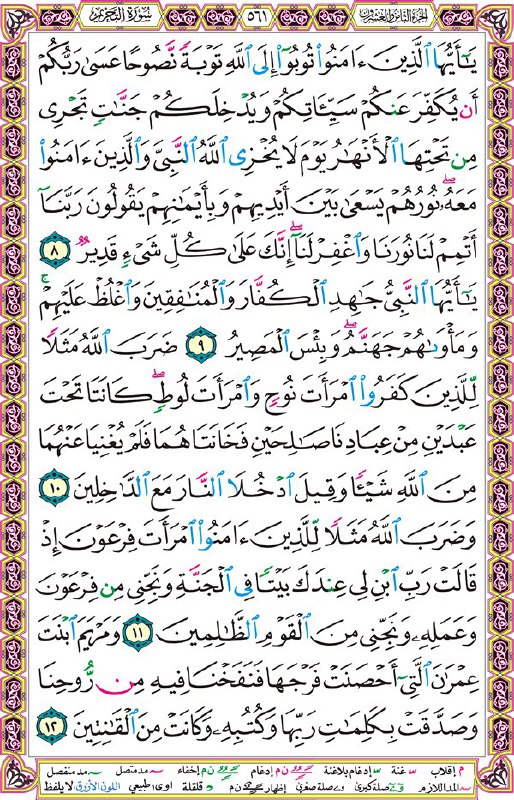 الجزء الثامن والعشرون ٥٦١ سورة التحريم
يَـٰٓأَيُّهَا ٱلَّذِينَ ءَامَنُوا۟ تُوبُوٓا۟ إِلَى ٱللَّهِ تَوْبَةً نَّصُوحًا عَسَىٰ رَبُّكُمْ
أَن يُكَفِّرَ عَنكُمْ سَيِّـَٔاتِكُمْ وَيُدْخِلَكُمْ جَنَّـٰتٍ تَجْرِى
مِن تَحْتِهَا ٱلْأَنْهَـٰرُ يَوْمَ لَا يُخْزِى ٱللَّهُ ٱلنَّبِىَّ وَٱلَّذِينَ ءَامَنُوا۟
مَعَهُۥ ۖ نُورُهُمْ يَسْعَىٰ بَيْنَ أَيْدِيهِمْ وَبِأَيْمَـٰنِهِمْ يَقُولُونَ رَبَّنَآ
أَتْمِمْ لَنَا نُورَنَا وَٱغْفِرْ لَنَآ ۖ إِنَّكَ عَلَىٰ كُلِّ شَىْءٍ قَدِيرٌ ٨
يَـٰٓأَيُّهَا ٱلنَّبِىُّ جَـٰهِدِ ٱلْكُفَّارَ وَٱلْمُنَـٰفِقِينَ وَٱغْلُظْ عَلَيْهِمْ ۚ
وَمَأْوَىٰهُمْ جَهَنَّمُ ۖ وَبِئْسَ ٱلْمَصِيرُ ٩ ضَرَبَ ٱللَّهُ مَثَلًا
لِّلَّذِينَ كَفَرُوا۟ ٱمْرَأَتَ نُوحٍ وَٱمْرَأَتَ لُوطٍ ۖ كَانَتَا تَحْتَ
عَبْدَيْنِ مِنْ عِبَادِنَا صَـٰلِحَيْنِ فَخَانَتَاهُمَا فَلَمْ يُغْنِيَا عَنْهُمَا
مِنَ ٱللَّهِ شَيْـًٔا وَقِيلَ ٱدْخُلَا ٱلنَّارَ مَعَ ٱلدَّٰخِلِينَ ١٠
وَضَرَبَ ٱللَّهُ مَثَلًا لِّلَّذِينَ ءَامَنُوا۟ ٱمْرَأَتَ فِرْعَوْنَ إِذْ
قَالَتْ رَبِّ ٱبْنِ لِى عِندَكَ بَيْتًا فِى ٱلْجَنَّةِ وَنَجِّنِى مِن فِرْعَوْنَ
وَعَمَلِهِۦ وَنَجِّنِى مِنَ ٱلْقَوْمِ ٱلظَّـٰلِمِينَ ١١ وَمَرْيَمَ ٱبْنَتَ
عِمْرَٰنَ ٱلَّتِىٓ أَحْصَنَتْ فَرْجَهَا فَنَفَخْنَا فِيهِ مِن رُّوحِنَا
وَصَدَّقَتْ بِكَلِمَـٰتِ رَبِّهَا وَكُتُبِهِۦ وَكَانَتْ مِنَ ٱلْقَـٰنِتِينَ ١٢
م إقلاب غنة إدغام بلاغنة ن م إدغام ن م إخفاء مد متصل مد منفصل
المد اللازم صلة كبرى صلة صغرى إظهار ن م قلقلة اوى طبيعي اللون الأزرق لا يلفظ